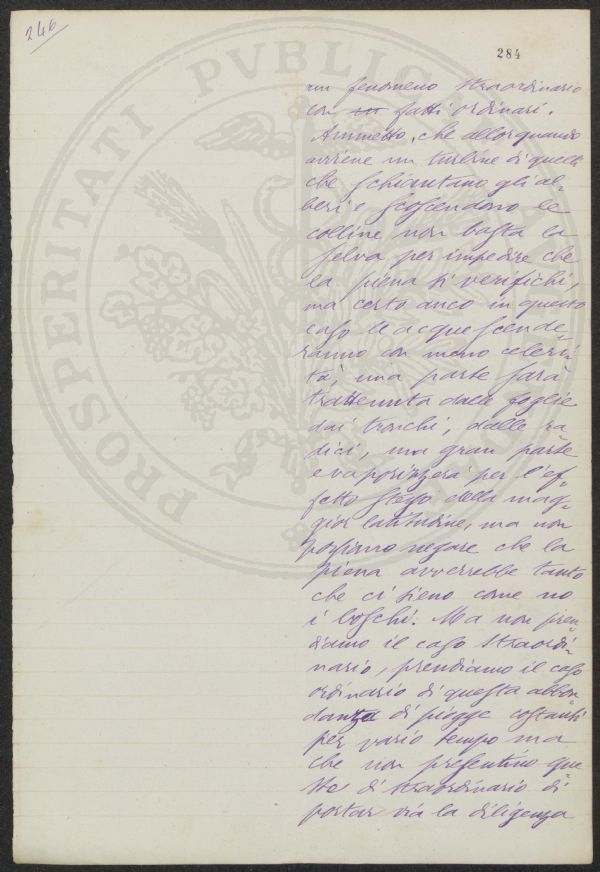 246
284
PROSPERITATI PVBLICAE
un fenomeno straordinario
con fatti ordinari.
Ammetto, che allorquando
avviene un turbine di quelli
che schiantano gli al-
beri e scoscendono le
colline non basta la
selva per impedire che
la piena si verifichi,
ma certo anco in questo
caso le acque scende-
ranno con meno celeri-
tà, una parte sarà
trattenuta dalle foglie
dai tronchi, dalle ra
dici, una gran parte
evaporizzerà per l'ef-
fetto stesso della mag-
gior latitudine, ma non
possiamo negare che la
piena avverrebbe tanto
che ci sieno come no
i boschi. Ma non pren-
diamo il caso straordi-
nario, prendiamo il caso
ordinario di questa abbon-
danza di piogge costanti
per vario tempo ma
che non presentino que
sto di straordinario di
portar via la diligenza